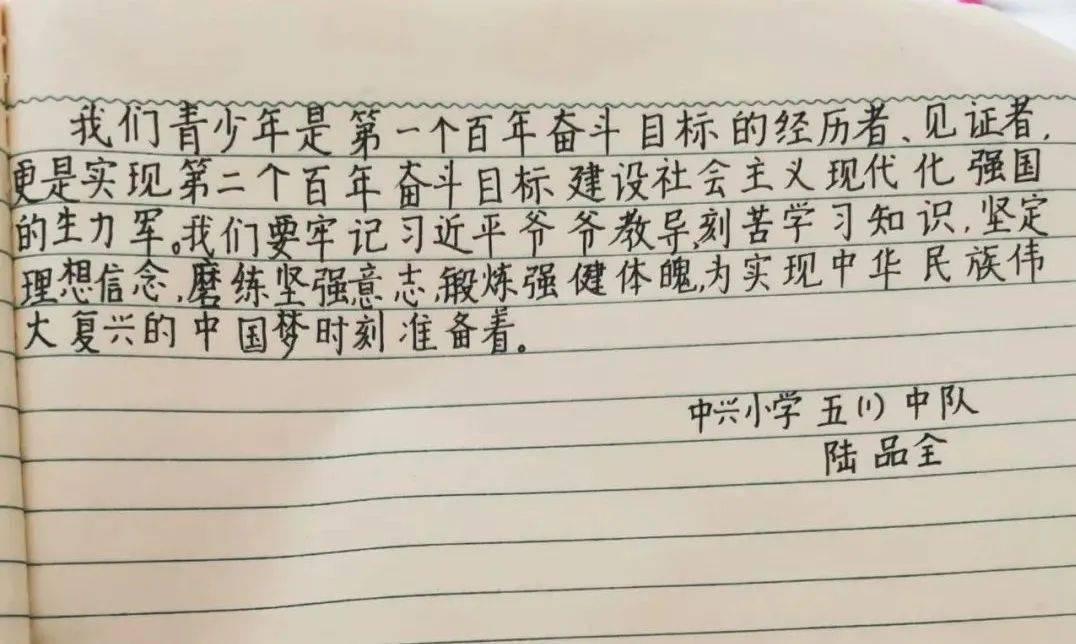 我们青少年是第一个百年奋斗目标的经历者、见证者,
更是实现第二个百年奋斗目标建设社会主义现代化强国
的生力军。我们要牢记习近平爷爷教导,刻苦学习知识,坚定
理想信念,磨练坚强意志,锻炼强健体魄,为实现中华民族伟
大复兴的中国梦时刻准备着。
中兴小学五(1)中队
陆品全